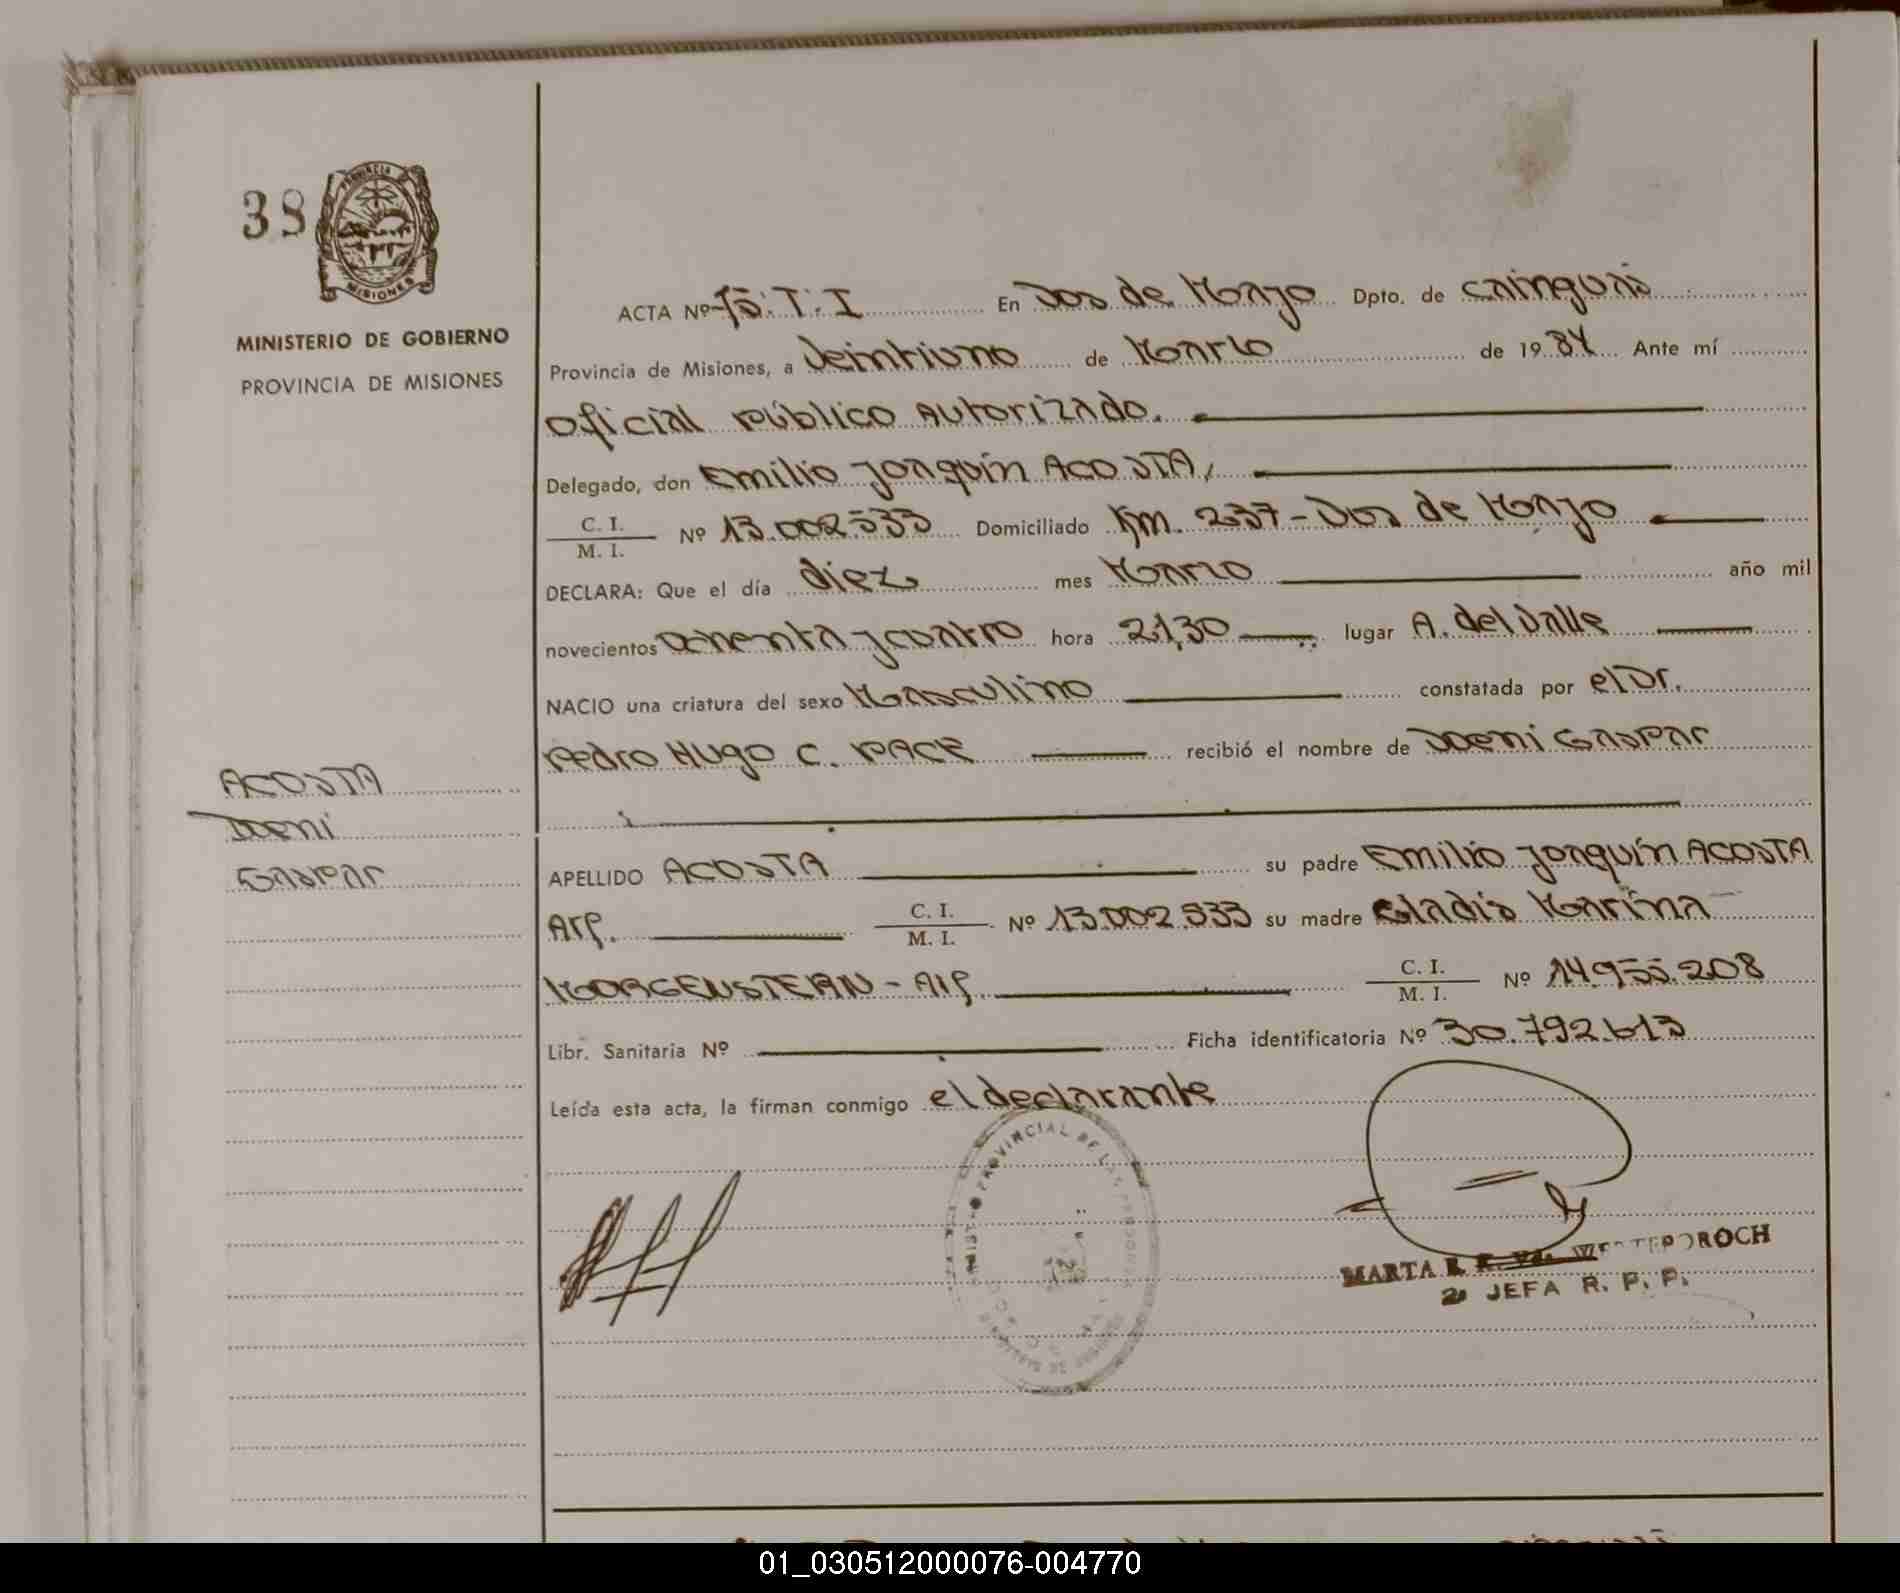 38
PROVINCIA
MISIONES
MINISTERIO DE GOBIERNO
PROVINCIA DE MISIONES
ACTA Nº 75. T. I En Dos de Mayo Dpto. de Cainguás
Provincia de Misiones, a Veintiuno de Marzo de 1984 Ante mí
Oficial Público Autorizado.
Delegado, don Emilio Joaquín ACOSTA,
C. I. / M. I. Nº 13.002.533 Domiciliado Km. 237 - Dos de Mayo
DECLARA: Que el día diez mes Marzo año mil
novecientos Ochenta y cuatro hora 21,30 lugar A. del Valle
NACIO una criatura del sexo Masculino constatada por el Dr.
Pedro Hugo C. PACE recibió el nombre de Doeni Gaspar
ACOSTA
Doeni
Gaspar
APELLIDO ACOSTA su padre Emilio Joaquín ACOSTA
Arg. C. I. / M. I. Nº 13.002.533 su madre Gladis Marina
MORGENSTERN - Arg. C. I. / M. I. Nº 14.955.208
Libr. Sanitaria Nº Ficha identificatoria Nº 30.792.613
Leída esta acta, la firman conmigo el declarante
PROVINCIAL DE LAS
MARTA
JEFA R. P. P.
01_030512000076-004770